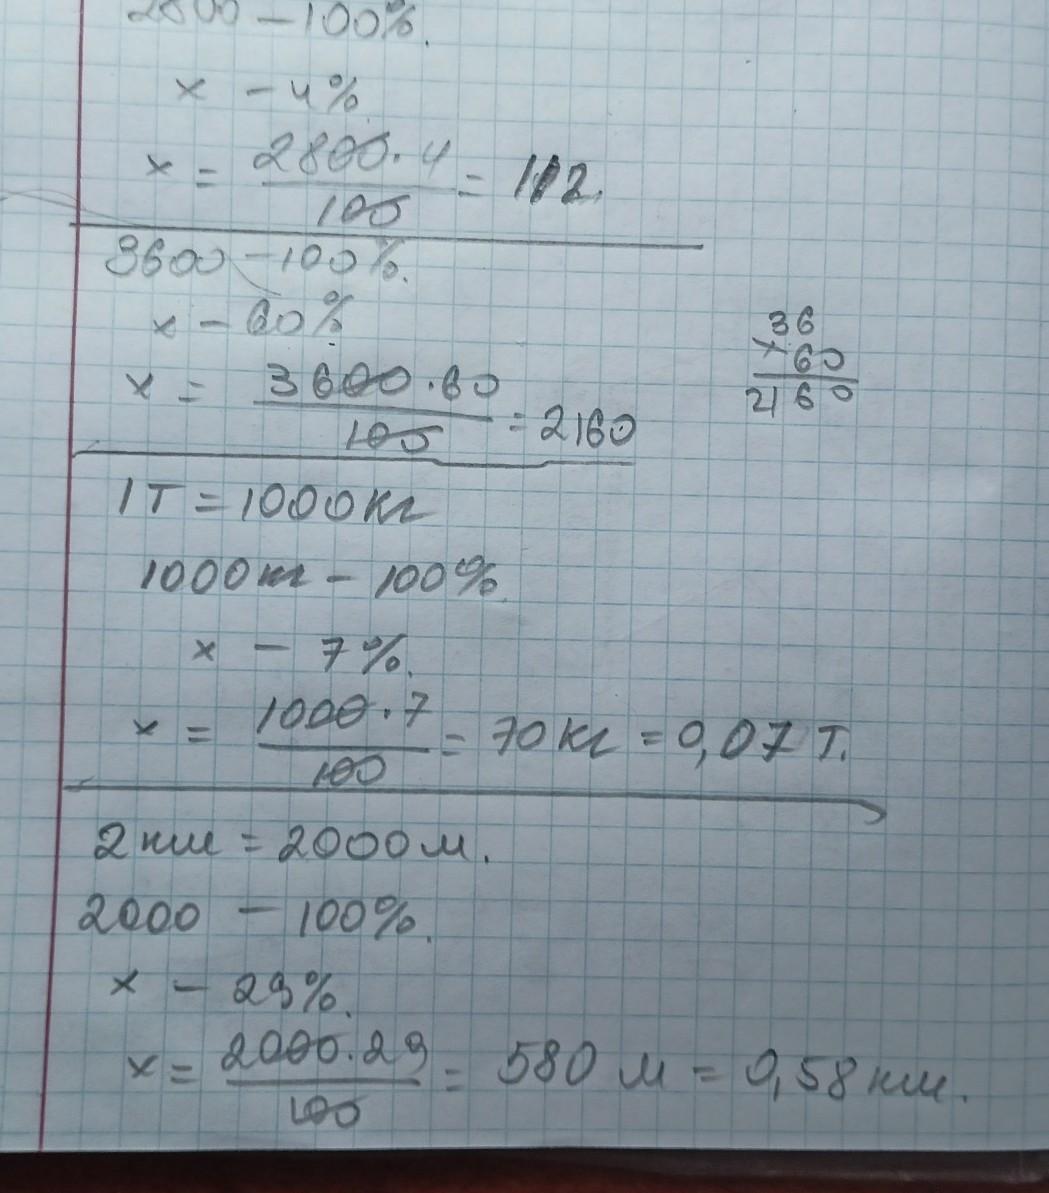 2800 – 100%.
x – 4%
x = 2800·4/100 = 112.
3600 – 100%.
x – 60%
x = 3600·60/100 = 2160
36
×60
2160
1т = 1000кг
1000кг – 100%
x – 7%.
x = 1000·7/100 = 70кг = 0,07т.
2км = 2000м.
2000 – 100%.
x – 29%.
x = 2000·29/100 = 580 м = 0,58км.